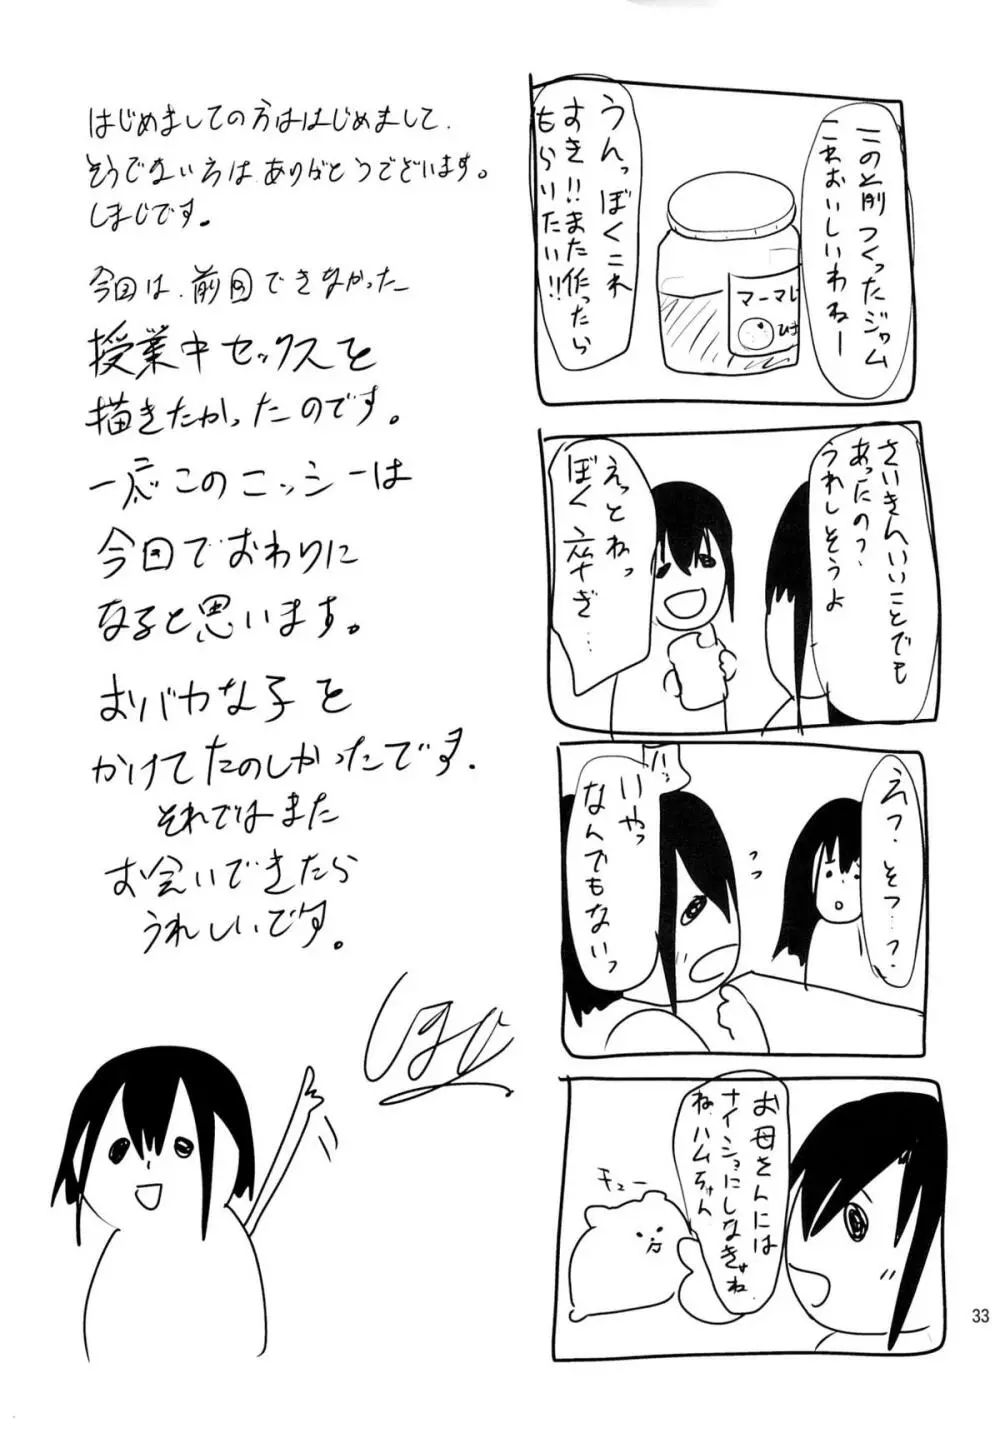 このと前つくったジャム
これおいしいわねー
うんっぼくこれ
すき!!また作ったら
もらいたい!!
マーマレ
さいきんいいことでも
あったの?
うれしそうよ
えっとねっ
ぼく
えっ、そっ…?
いやっ
なんでもないっ
お母さんには
ナイショにしなきゃね
ね、ハムちゃん
チュー
はじめましての方ははじめまして、
そうでない方はありがとうございます。
しまじです。
今回は、前回できなかった
授業中セックスを
描きたかったのです。
一応このニッシーは
今回でおわりに
なると思います。
おバカな子を
かけてたのしかったです。
それではまた
お会いできたら
うれしいです。
33